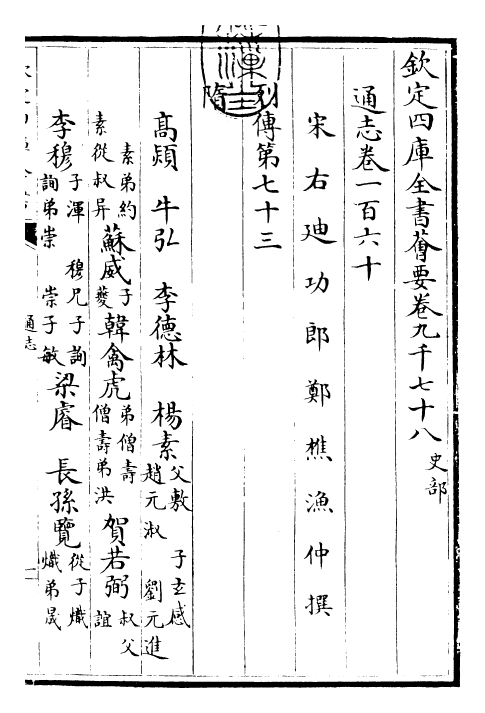 欽定四庫全書薈要卷九千七十八 史部
通志卷一百六十
宋右迪功郎鄭樵漁仲撰
列傳第七十三
隋
高熲 牛弘 李德林 楊素 父敷 子玄感 趙元淑 劉元進
素弟約 素從叔异 蘇威 子夔 韓禽虎 弟僧壽 僧壽弟洪 賀若弼 叔父誼
李穆 子渾 穆兄子詢 詢弟崇 崇子敏 梁睿 長孫覽 從子熾 熾弟晟
通志